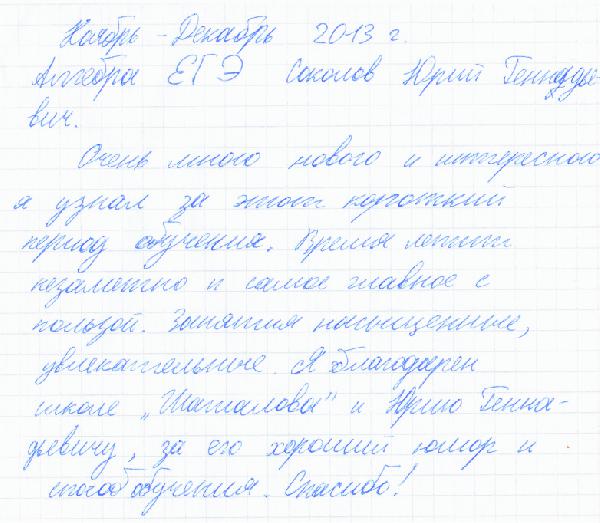 Ноябрь - Декабрь 2013 г.
Алгебра ЕГЭ Соколов Юрий Геннадье-
вич.
Очень много нового и интересного
я узнал за этот короткий
период обучения. Время летит
незаметно и самое главное с
пользой. Занятия насыщенные,
увлекательные. Я благодарен
школе „Шаталова" и Юрию Генна-
дьевичу, за его хороший юмор и
способ обучения. Спасибо!